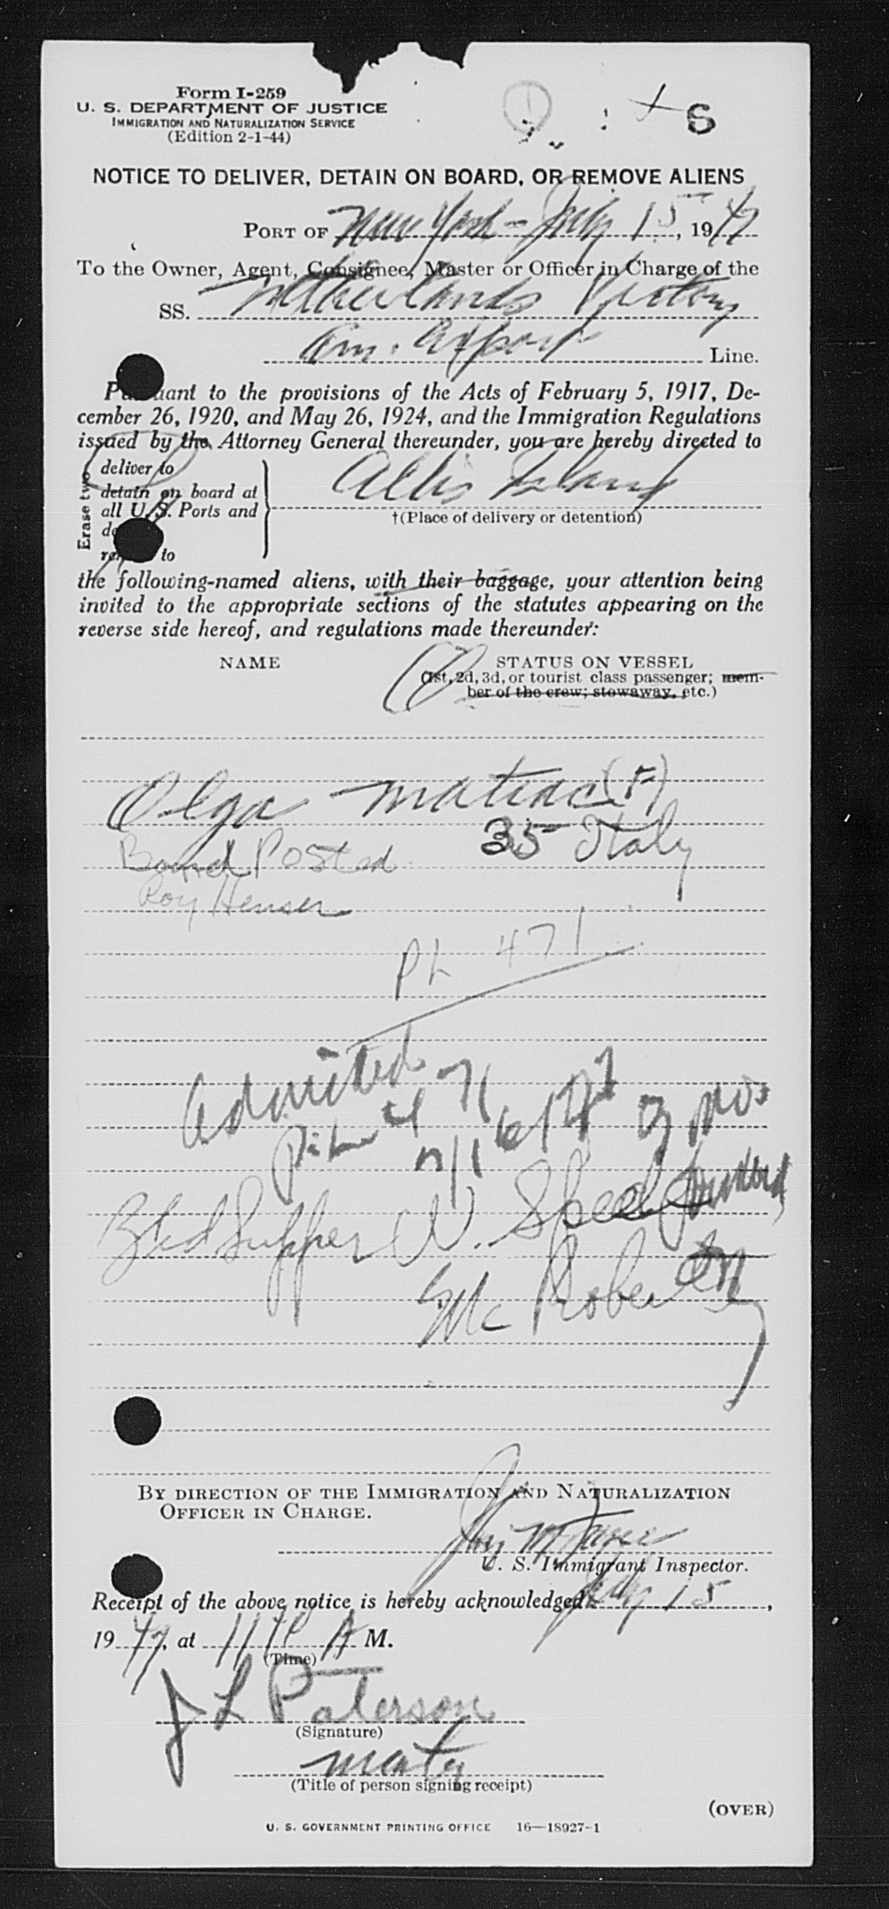 Form I-259
U. S. DEPARTMENT OF JUSTICE
IMMIGRATION AND NATURALIZATION SERVICE
(Edition 2-1-44)
6
NOTICE TO DELIVER, DETAIN ON BOARD, OR REMOVE ALIENS
PORT OF New York - July 15, 1947
To the Owner, Agent, Consignee, Master or Officer in Charge of the
SS. Netherlands Victory
Am. Export Line.
Pursuant to the provisions of the Acts of February 5, 1917, De-
cember 26, 1920, and May 26, 1924, and the Immigration Regulations
issued by the Attorney General thereunder, you are hereby directed to
Erase two
deliver to
detain on board at
all U. S. Ports and
to
Ellis Island
†(Place of delivery or detention)
the following-named aliens, with their baggage, your attention being
invited to the appropriate sections of the statutes appearing on the
reverse side hereof, and regulations made thereunder:
NAME STATUS ON VESSEL
(1st, 2d, 3d, or tourist class passenger; mem-
ber of the crew; stowaway, etc.)
Olga (F)
Bond Posted 35 Italy
Roy
PL 471
Admitted
471
7/16/47 3 mos
Supper W.
Mc
BY DIRECTION OF THE IMMIGRATION AND NATURALIZATION
OFFICER IN CHARGE.
U. S. Immigrant Inspector.
Receipt of the above notice is hereby acknowledged July 15,
1947, at A M.
(Time)
J L Paterson
(Signature)
(Title of person signing receipt)
(OVER)
U. S. GOVERNMENT PRINTING OFFICE 16—18927-1